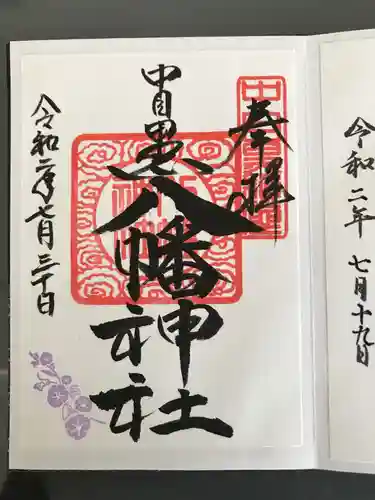 令和二年 七月十九日
奉拝
中目黒八幡神社
令和二年七月三十日